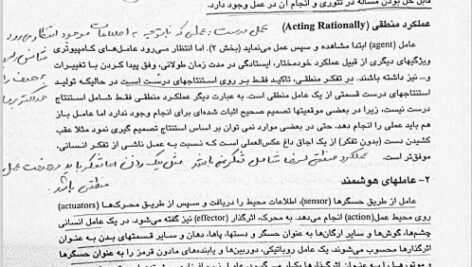 قابل حل بودن مساله در تئوری و انجام آن در عمل وجود دارد.
عملکرد منطقی (Acting Rationally)
عمل درست: عملی که با توجه به اطلاعات موجود انتظار می‌رود
عامل (agent) ابتدا مشاهده و سپس عمل می‌نماید (بخش ۲). اما انتظار می‌رود عامل‌های کامپیوتری
ویژگهای دیگری از قبیل عملکرد خودمختار، ایستادگی در مدت زمان طولانی، وفق پیدا کردن با تغییرات
و... نیز داشته باشند. در تفکر منطقی، تاکید فقط بر روی استنتاجهای درست است در حالیکه تولید
استنتاجهای درست قسمتی از یک عامل منطقی است. به عبارت دیگر عملکرد منطقی فقط شامل استنتاج
درست نیست، زیرا در بعضی موقعیتها تصمیم صحیح اثبات شده‌ای برای انجام وجود ندارد اما عامل باز
هم باید عملی را انجام دهد. حتی در بعضی موارد نمی توان بر اساس استنتاج تصمیم گیری نمود مثلا عقب
کشیدن دست (بدون تفکر) از یک اجاق داغ عکس‌العملی است که نسبت به عمل ناشی از تفکر انسانی،
موفق‌تر است.
عملکرد منطقی لزوما شامل تفکر نمی باشد
منطقی باشد
۲- عاملهای هوشمند
عامل از طریق حسگرها (sensor)، اطلاعات محیط را دریافت و سپس از طریق محرک‌ها (actuators)
روی محیط عمل (action) انجام می‌دهد. به محرک، اثرگذار (effector) نیز گفته می‌شود. در یک عامل انسانی
چشم‌ها، گوش‌ها و سایر ارگان‌ها به عنوان حسگر و دستها، پاها، دهان و سایر قسمتهای بدن به عنوان
اثرگذارها محسوب می‌شوند. یک عامل روباتیکی، دوربین‌ها و یابنده‌های مادون قرمز را به عنوان حسگرها
و موتورها را به عنوان اثرگذارها بکار می‌گیرد.